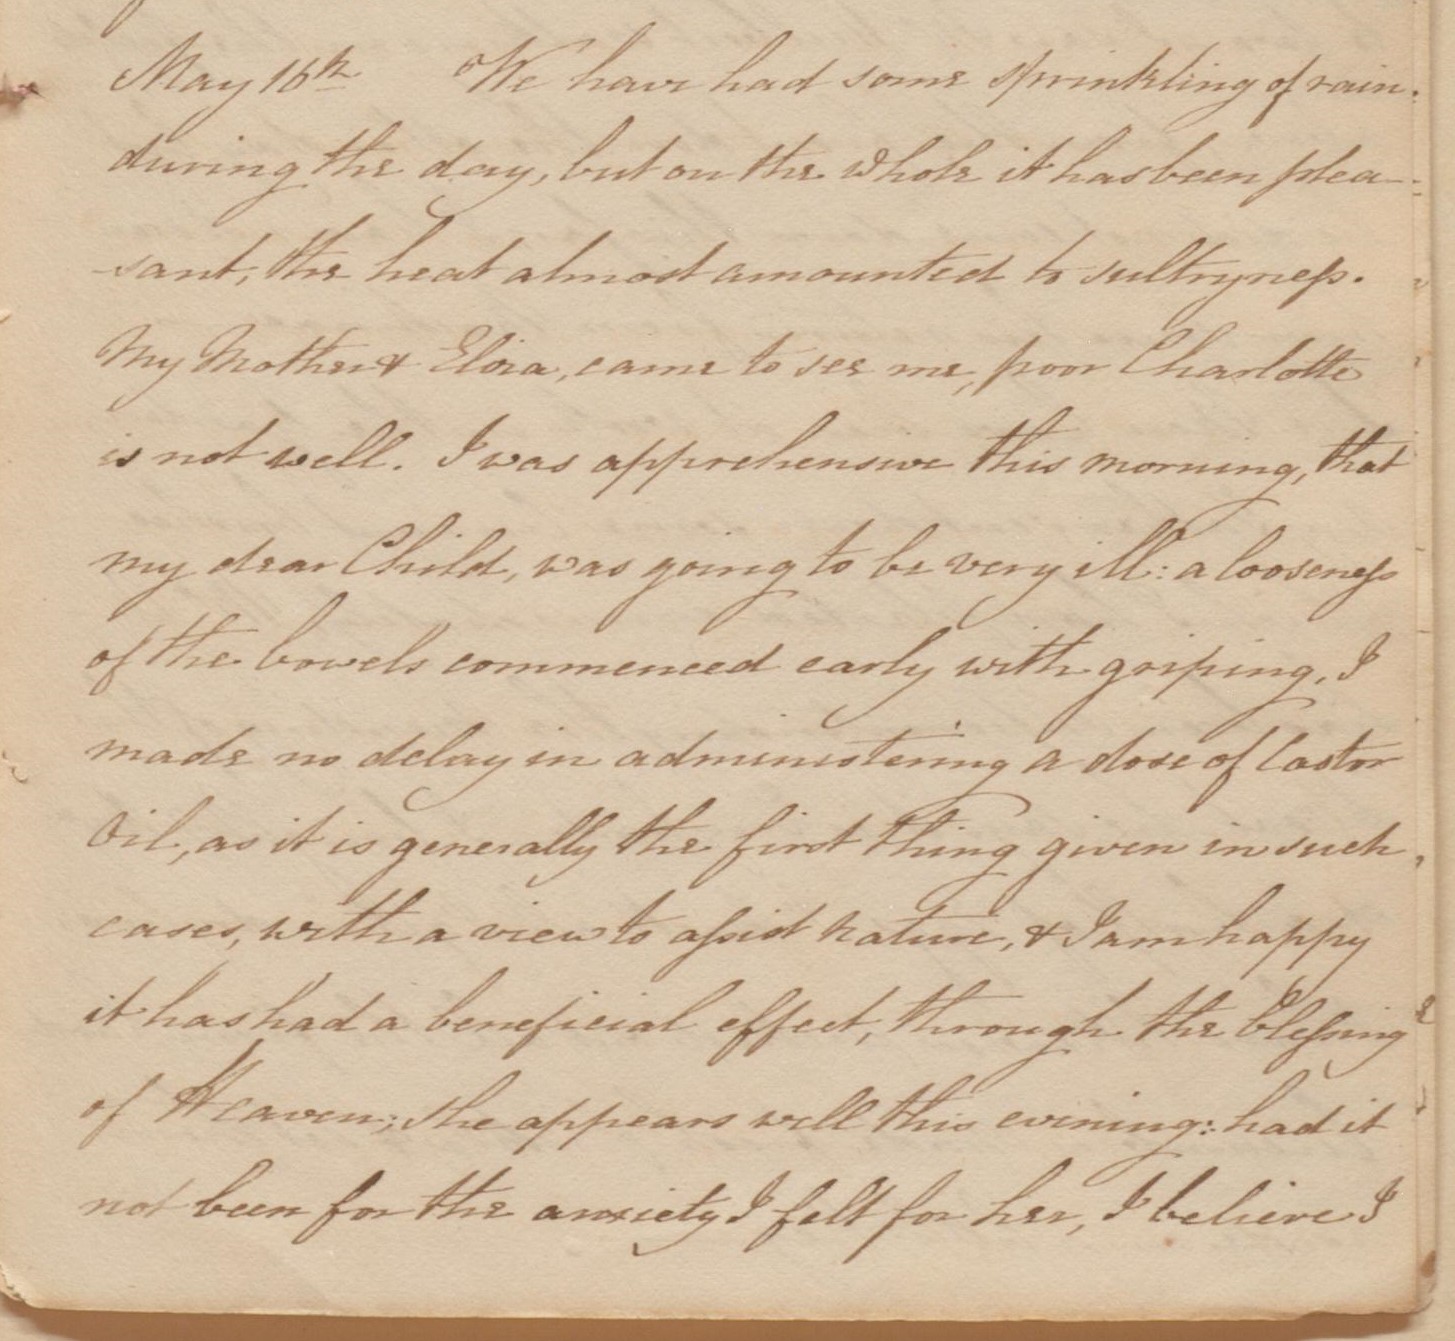 May 16th We have had some sprinkling of rain
during the day, but on the whole it has been plea-
-sant; the heat almost amounted to sultryness.
My Mother & Eliza, came to see me, poor Charlotte
is not well. I was apprehensive this morning, that
my dear Child, was going to be very ill: a looseness
of the bowels commenced early with griping, I
made no delay in administering a dose of Castor
Oil, as it is generally the first thing given in such
cases, with a view to assist nature, & I am happy
it has had a beneficial effect, through the blessing
of Heaven; she appears well this evening: had it
not been for the anxiety I felt for her, I believe I